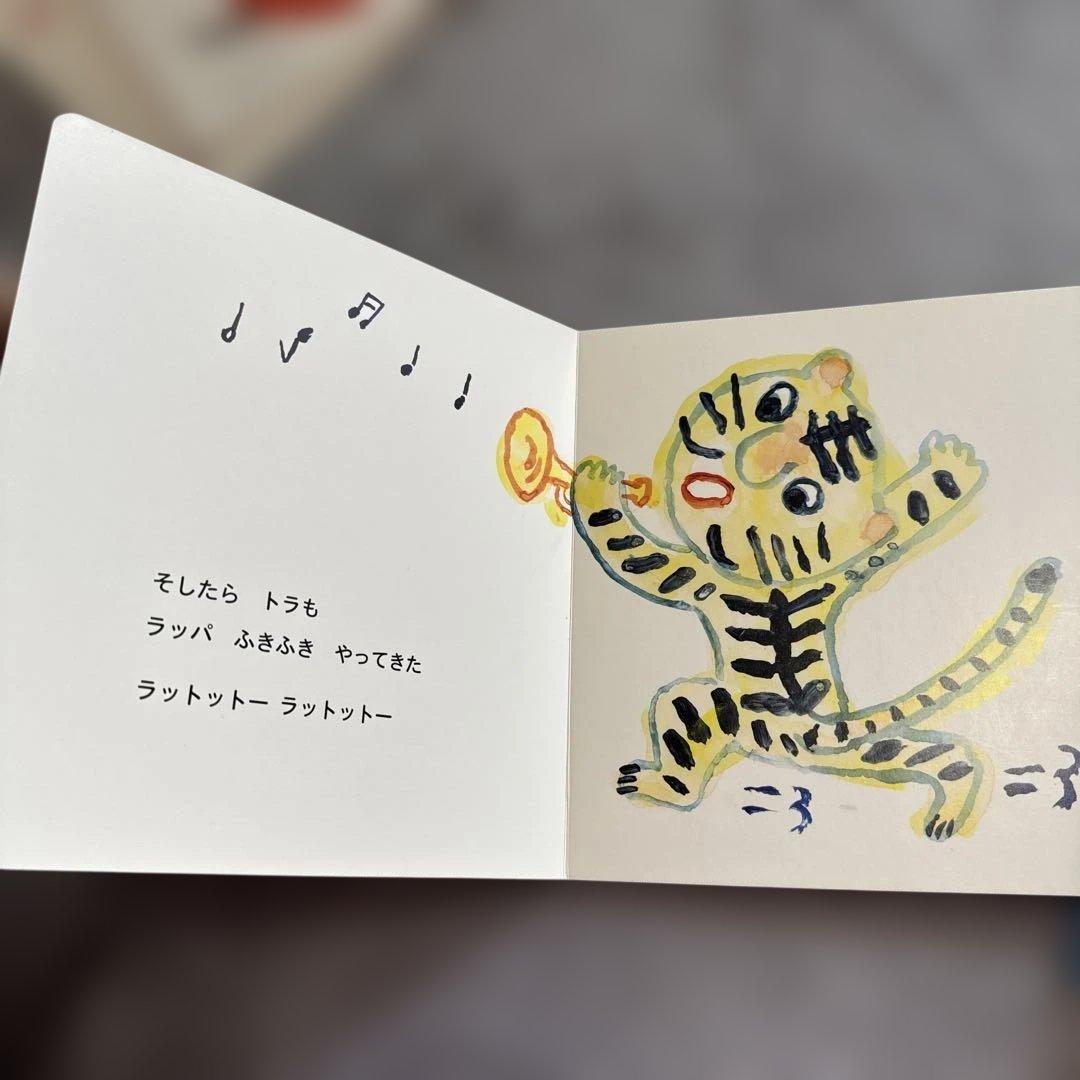 そしたら　トラも
ラッパ　ふきふき　やってきた
ラットットー ラットットー